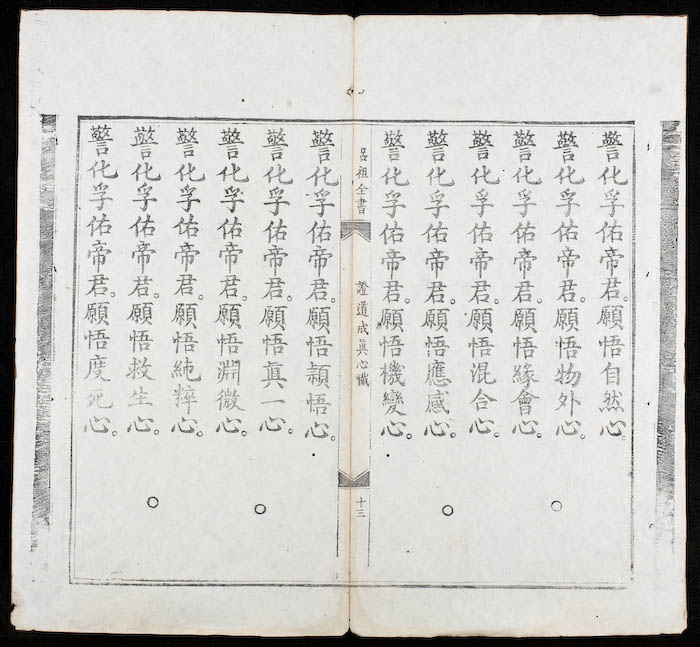 警化孚佑帝君。願悟自然心。
警化孚佑帝君。願悟物外心。
警化孚佑帝君。願悟緣會心。
警化孚佑帝君。願悟混合心。
警化孚佑帝君。願悟應感心。
警化孚佑帝君。願悟機變心。
呂祖全書 證道成眞心懺 十三
警化孚佑帝君。願悟穎悟心。
警化孚佑帝君。願悟眞一心。
警化孚佑帝君。願悟淵微心。
警化孚佑帝君。願悟純粹心。
警化孚佑帝君。願悟救生心。
警化孚佑帝君。願悟度死心。